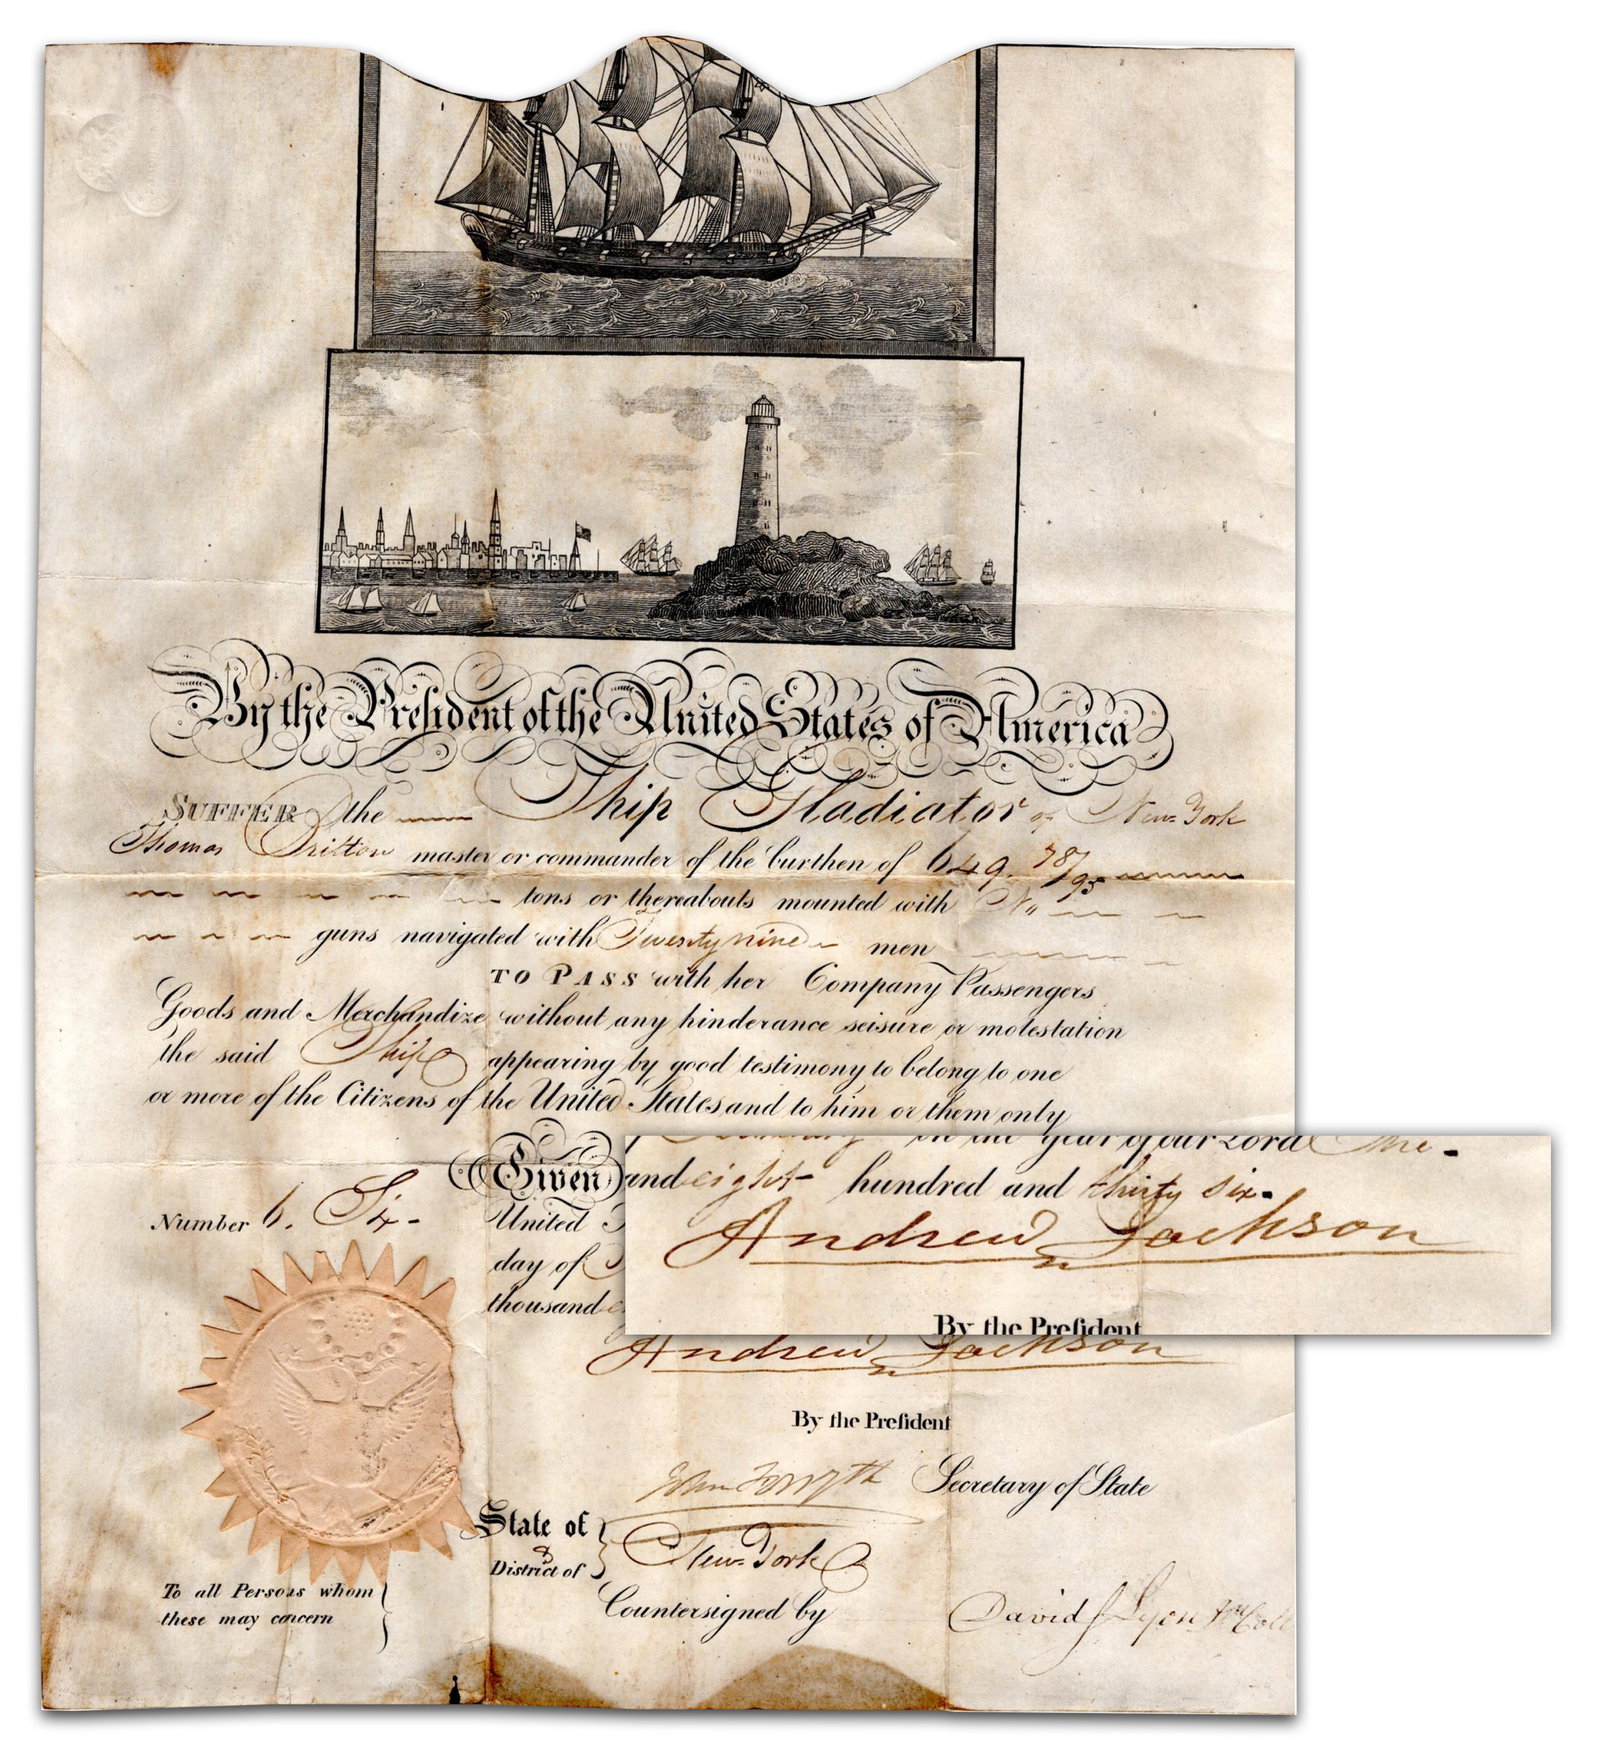 By the President of the United States of America
SUFFER the Ship Gladiator of New York
Thomas Britton master or commander of the burthen of 649. 78/95
tons or thereabouts mounted with No
guns navigated with Twenty nine men
TO PASS with her Company Passengers
Goods and Merchandize without any hinderance seisure or molestation
the said Ship appearing by good testimony to belong to one
or more of the Citizens of the United States and to him or them only
Given
in the year of our Lord One
and eight hundred and thirty six.
Andrew Jackson
By the President
Number 6. Six
United
day of
thousand
Andrew Jackson
By the President
John Forsyth Secretary of State
State of
& New York
District of
To all Persons whom
these may concern
Countersigned by
David S Lyon Coll